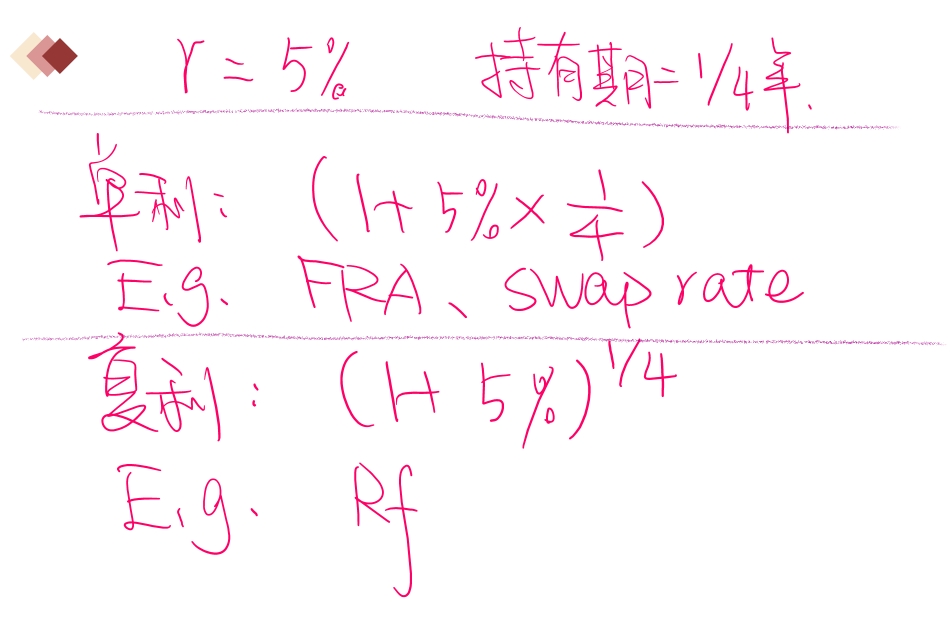 r = 5% 持有期=1/4年.
单利: (1+5%×1/4)
E.g. FRA、swap rate
复利: (1+5%)^1/4
E.g. Rf